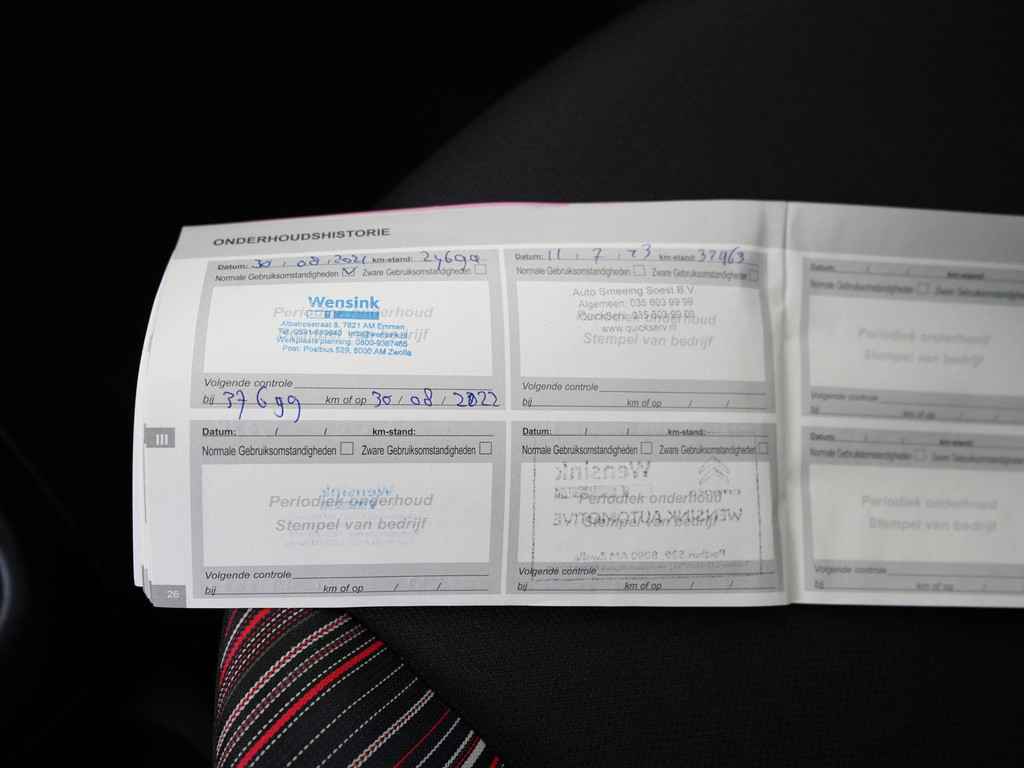 ONDERHOUDSHISTORIE
Datum: 30 / 08 / 2021 km-stand: 24699
Normale Gebruiksomstandigheden Zware Gebruiksomstandigheden
Periodiek onderhoud
Stempel van bedrijf
Wensink
Albatrosstraat 8, 7821 AM Emmen
Post: Postbus 529, 8000 AM Zwolle
Volgende controle
bij 37699 km of op 30 / 08 / 2022
Datum: 11 / 7 / 23 km-stand: 32963
Normale Gebruiksomstandigheden Zware Gebruiksomstandigheden
Auto Smeeing Soest B.V.
Algemeen: 035 603 99 99
www.quickserv.nl
Periodiek onderhoud
Stempel van bedrijf
Volgende controle
bij km of op / /
Datum: / / km-stand:
Normale Gebruiksomstandigheden Zware Gebruiksomstandigheden
Periodiek onderhoud
Stempel van bedrijf
Volgende controle
bij km of op / /
III
Datum: / / km-stand:
Normale Gebruiksomstandigheden Zware Gebruiksomstandigheden
Wensink
Periodiek onderhoud
Stempel van bedrijf
Volgende controle
bij km of op / /
Datum: / / km-stand:
Normale Gebruiksomstandigheden Zware Gebruiksomstandigheden
Wensink
Periodiek onderhoud
Stempel van bedrijf
WENSINK AUTOMOTIVE
Volgende controle
bij km of op / /
Datum: / / km-stand:
Normale Gebruiksomstandigheden
Periodiek onderhoud
Stempel van bedrijf
Volgende controle
bij km of op / /
26